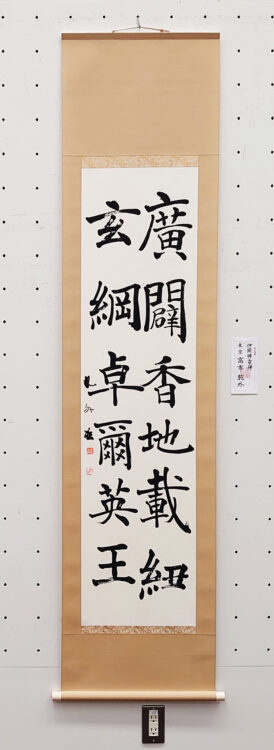 廣闢香地載紐
玄綱卓爾英王